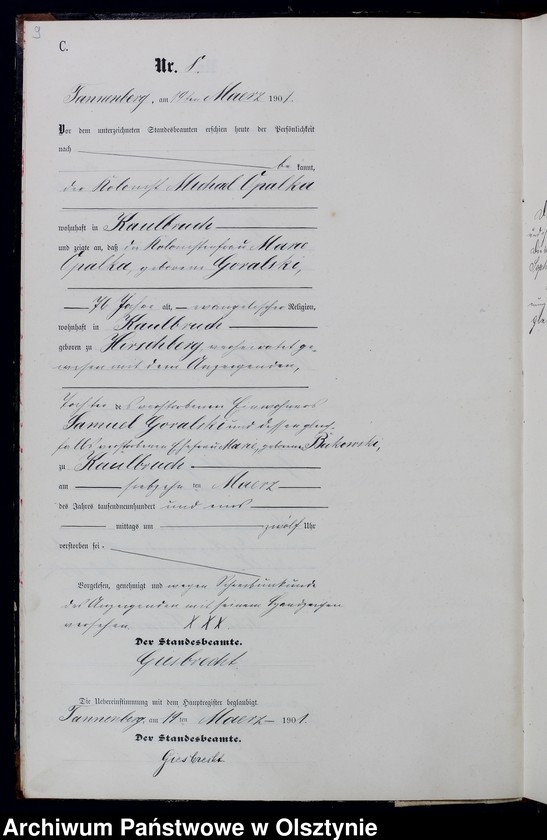 9
C.
Nr. 8.
Tannenberg, am 19ten Maerz 1901.
Vor dem unterzeichneten Standesbeamten erschien heute der Persönlichkeit
nach
be kannt,
der Kolonist Michael Opalka
wohnhaft in Kaulbruch
und zeigte an, daß die Kolonistenfrau Marie
Opalka, geborene Goralski,
76 Jahre alt, evangelischer Religion,
wohnhaft in Kaulbruch
geboren zu Hirschberg verheiratet ge-
wesen mit dem Anzeigenden,
Tochter des verstorbenen Einwohners
Samuel Goralski und dessen gleich-
falls verstorbenen Ehefrau Marie, geborene Bukowski,
zu Kaulbruch
am siebzehn ten Maerz
des Jahres tausendneunhundert und eins
mittags um zwölf Uhr
verstorben sei.
Vorgelesen, genehmigt und wegen Schreibunkunde
des Anzeigenden mit seinem Handzeichen
versehen. XXX
Der Standesbeamte.
Giesbrecht
Die Uebereinstimmung mit dem Hauptregister beglaubigt.
Tannenberg, am 19 ten Maerz 1901.
Der Standesbeamte.
Giesbrecht
Archiwum Państwowe w Olsztynie